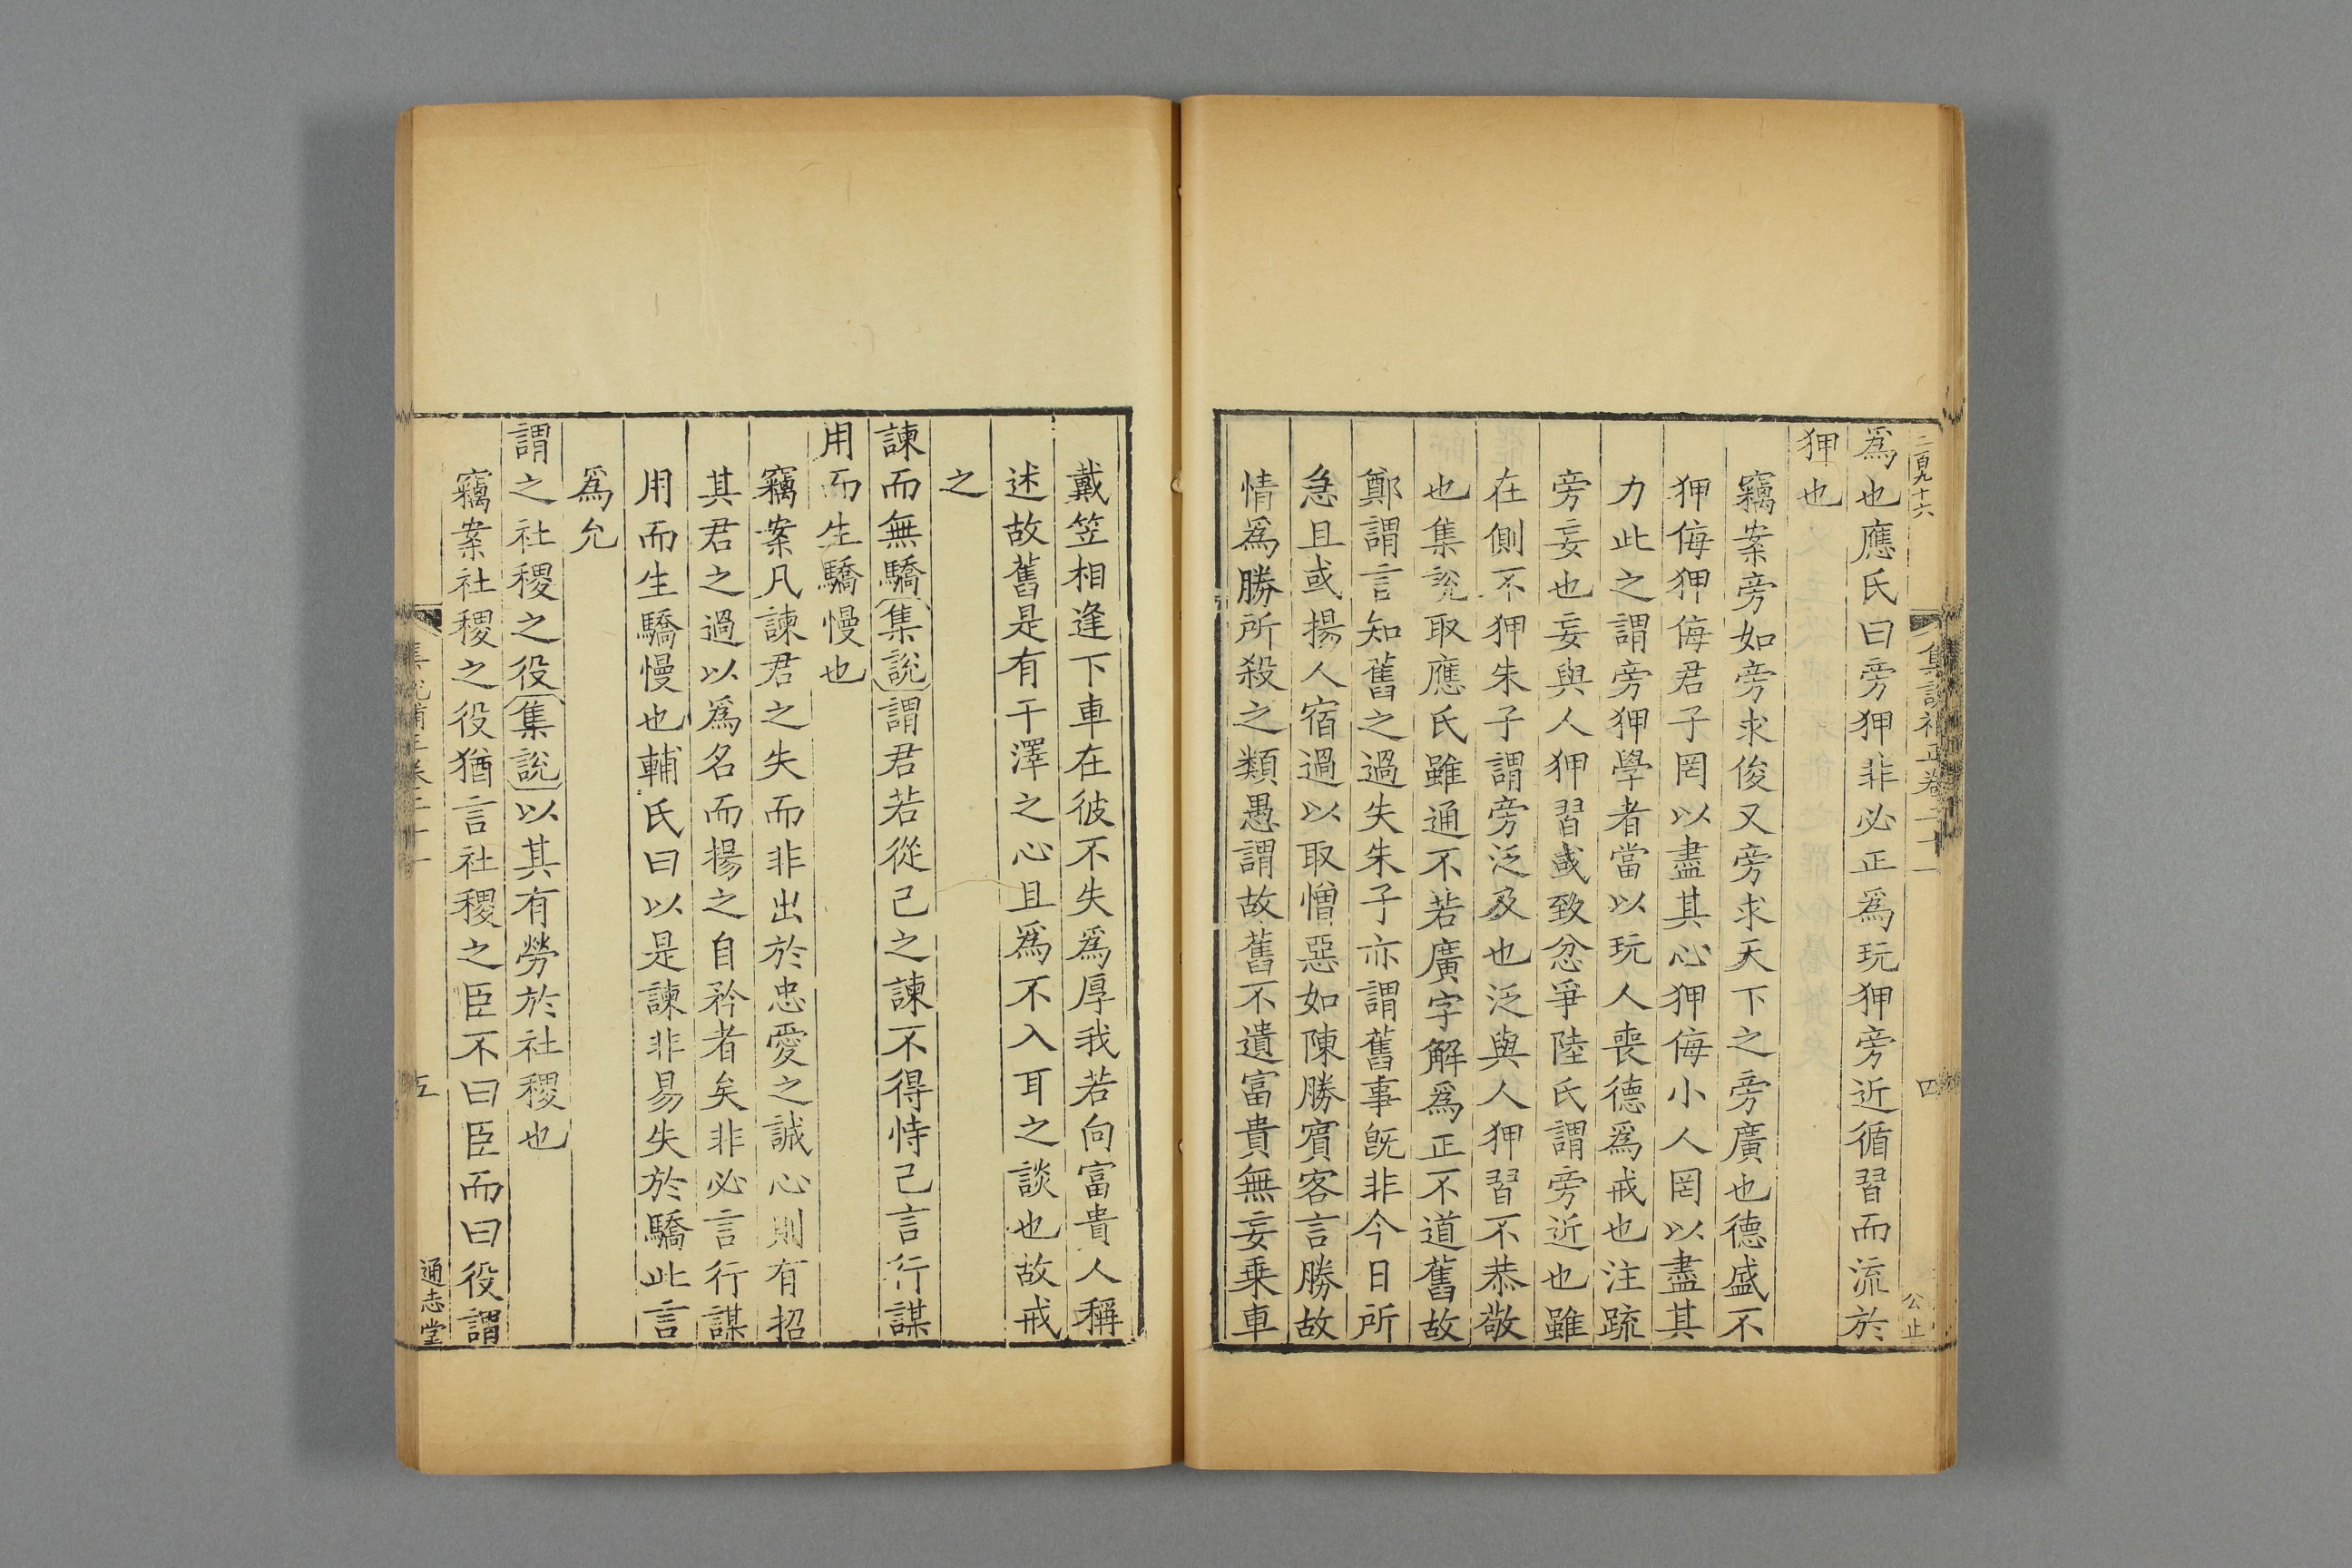 二百九十六
集說補正卷二十一
四
公止
為也應氏曰旁狎非必正為玩狎旁近循習而流於
狎也
竊案旁如旁求俊又旁求天下之旁廣也德盛不
狎侮狎侮君子罔以盡其心狎侮小人罔以盡其
力此之謂旁狎學者當以玩人喪德爲戒也注疏
旁妄也妄與人狎習或致忿爭陸氏謂旁近也雖
在側不狎朱子謂旁泛及也泛與人狎習不恭敬
也集說取應氏雖通不若廣字解爲正不道舊故
鄭謂言知舊之過失朱子亦謂舊事旣非今日所
急且或揚人宿過以取憎惡如陳勝賓客言勝故
情爲勝所殺之類愚謂故舊不遺富貴無妄乗車
戴笠相逢下車在彼不失爲厚我若向富貴人稱
述故舊是有干澤之心且爲不入耳之談也故戒
之
諫而無驕集說謂君若從己之諫不得恃己言行謀
用而生驕慢也
竊案凡諫君之失而非出於忠愛之誠心則有招
其君之過以爲名而揚之自矜者矣非必言行謀
用而生驕慢也輔氏曰以是諫非易失於驕此言
爲允
謂之社稷之役集說以其有勞於社稷也
竊案社稷之役猶言社稷之臣不曰臣而曰役謂
集說補正卷二十一
五
通志堂